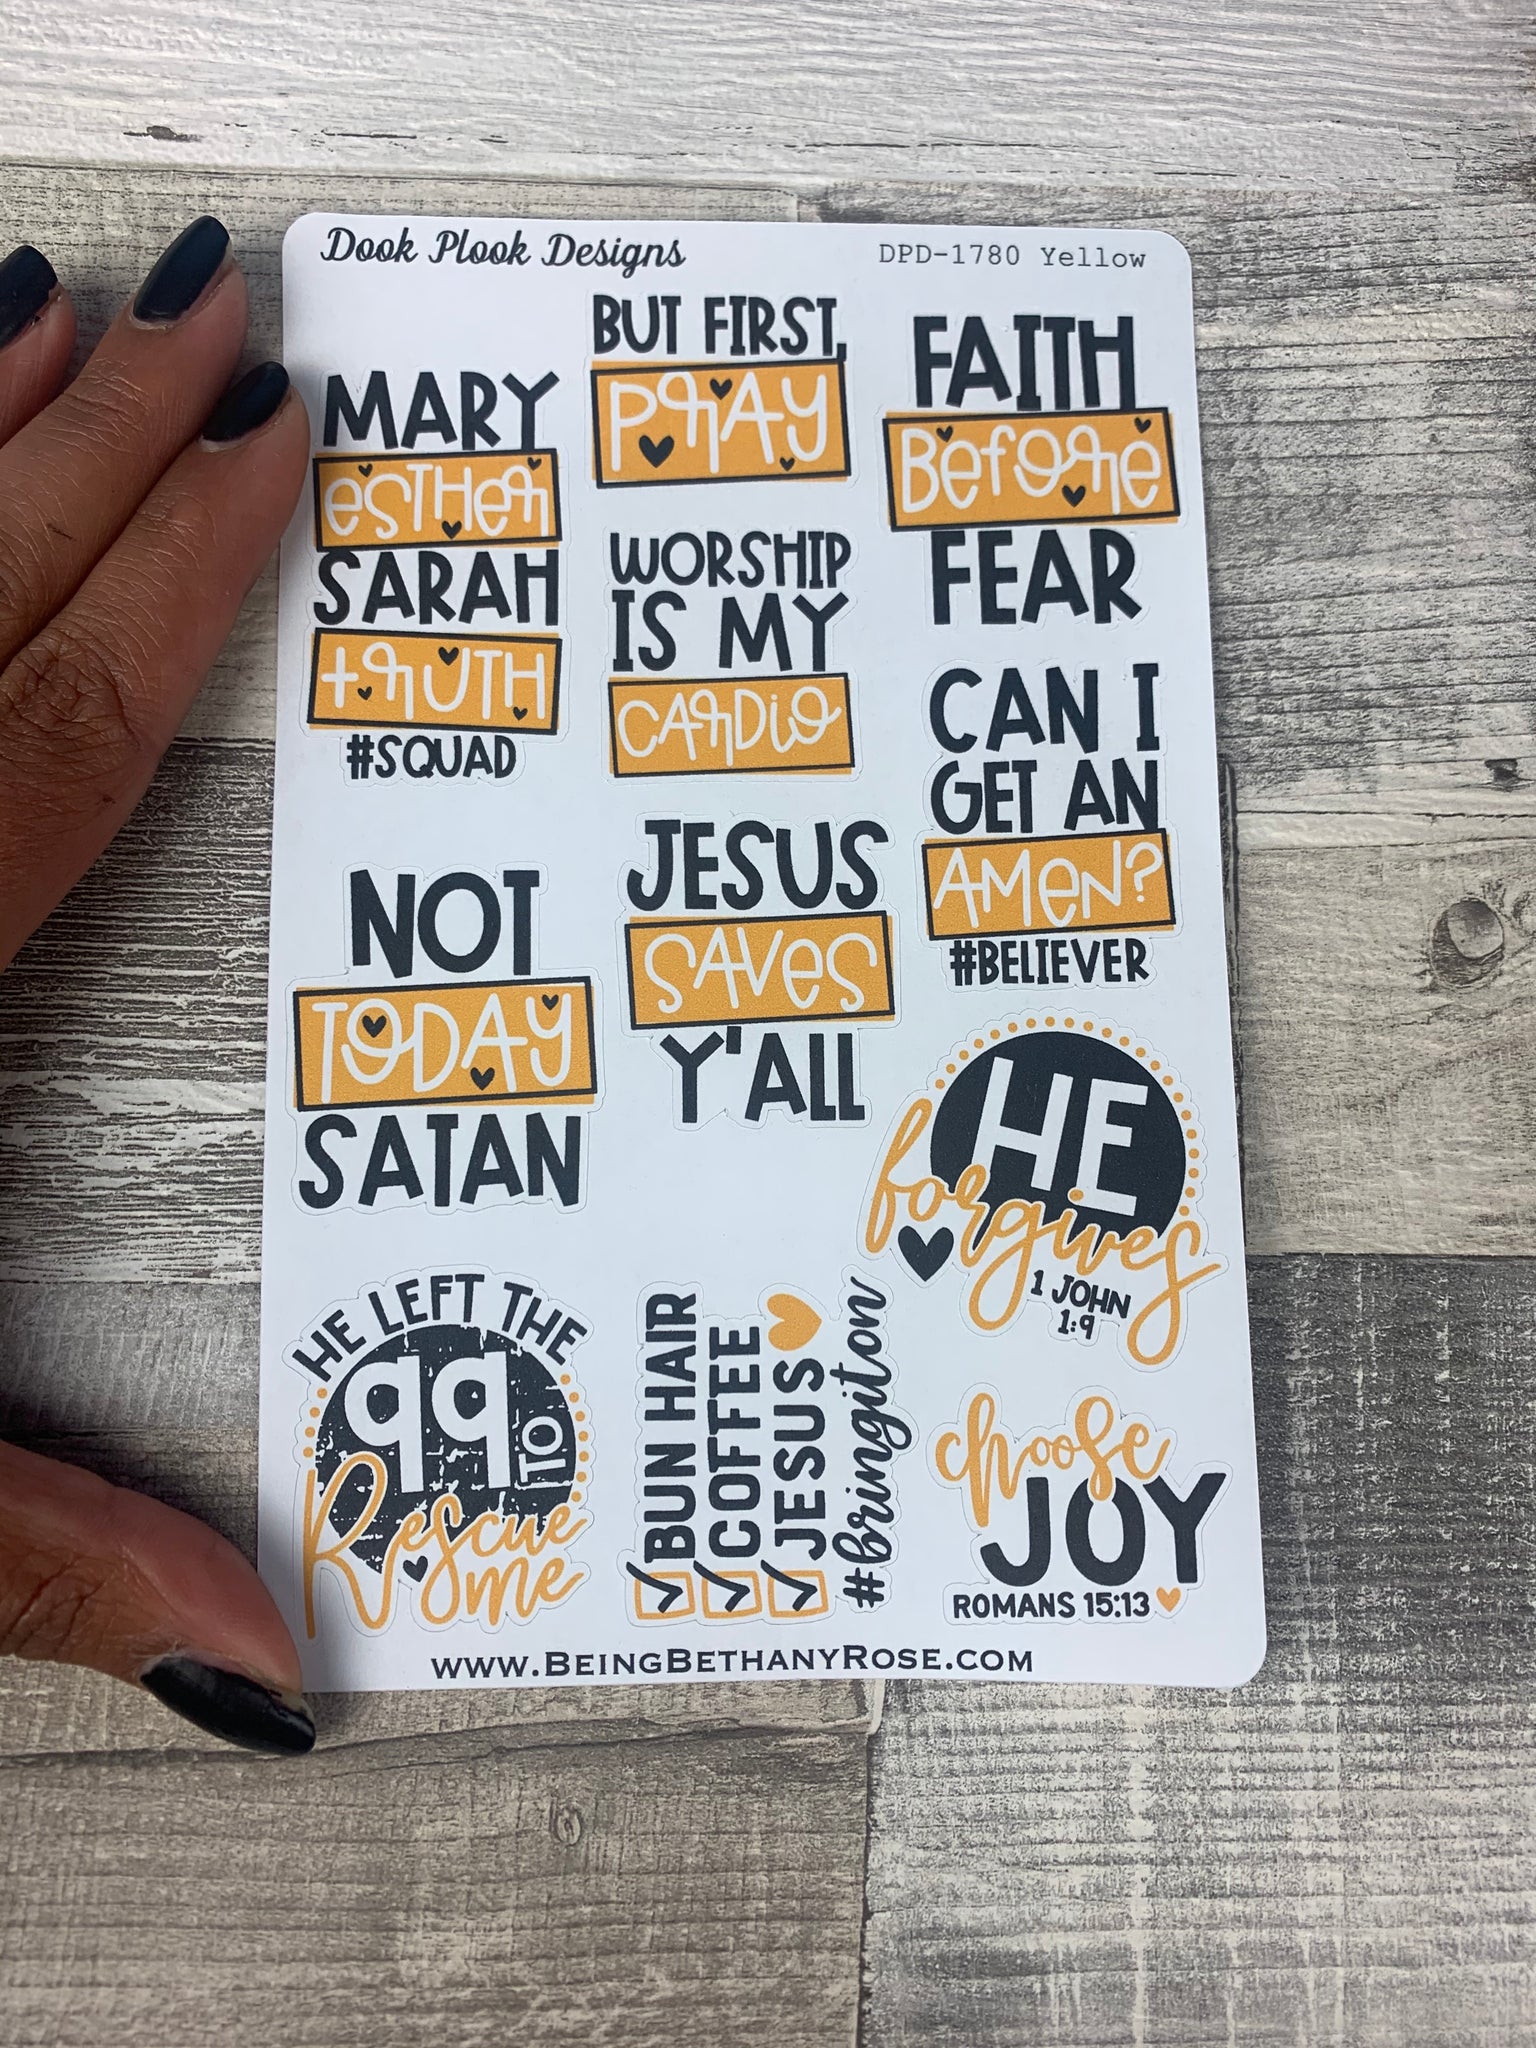 Dook Plook Designs
DPD-1780 Yellow
MARY
esTHer
SARAH
+rUTH
#SQUAD
BUT FIRST,
PrAy
FAITH
Before
FEAR
WORSHIP
IS MY
CArDio
CAN I
GET AN
AMeN?
#BELIEVER
NOT
TODAY
SATAN
JESUS
SAVeS
Y'ALL
HE
forgives
1 JOHN
1:9
HE LEFT THE
99
TO
Rescue
me
BUN HAIR
COFFEE
JESUS
#bringiton
choose
JOY
ROMANS 15:13
www.BeingBethanyRose.com